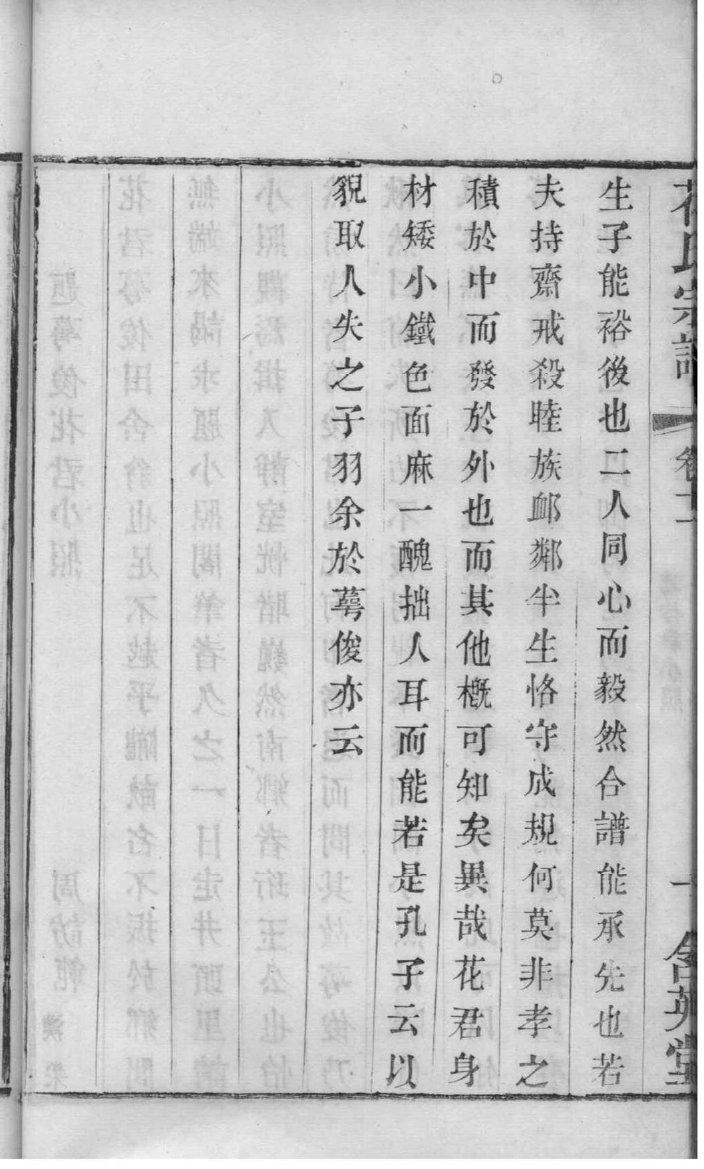 花氏宗譜 卷十一 一 含英堂
生子能裕後也二人同心而毅然合譜能承先也若
夫持齋戒殺睦族卹鄰半生恪守成規何莫非孝之
積於中而發於外也而其他槪可知矣異哉花君身
材矮小鐵色面麻一醜拙人耳而能若是孔子云以
貌取人失之子羽余於蕚俊亦云